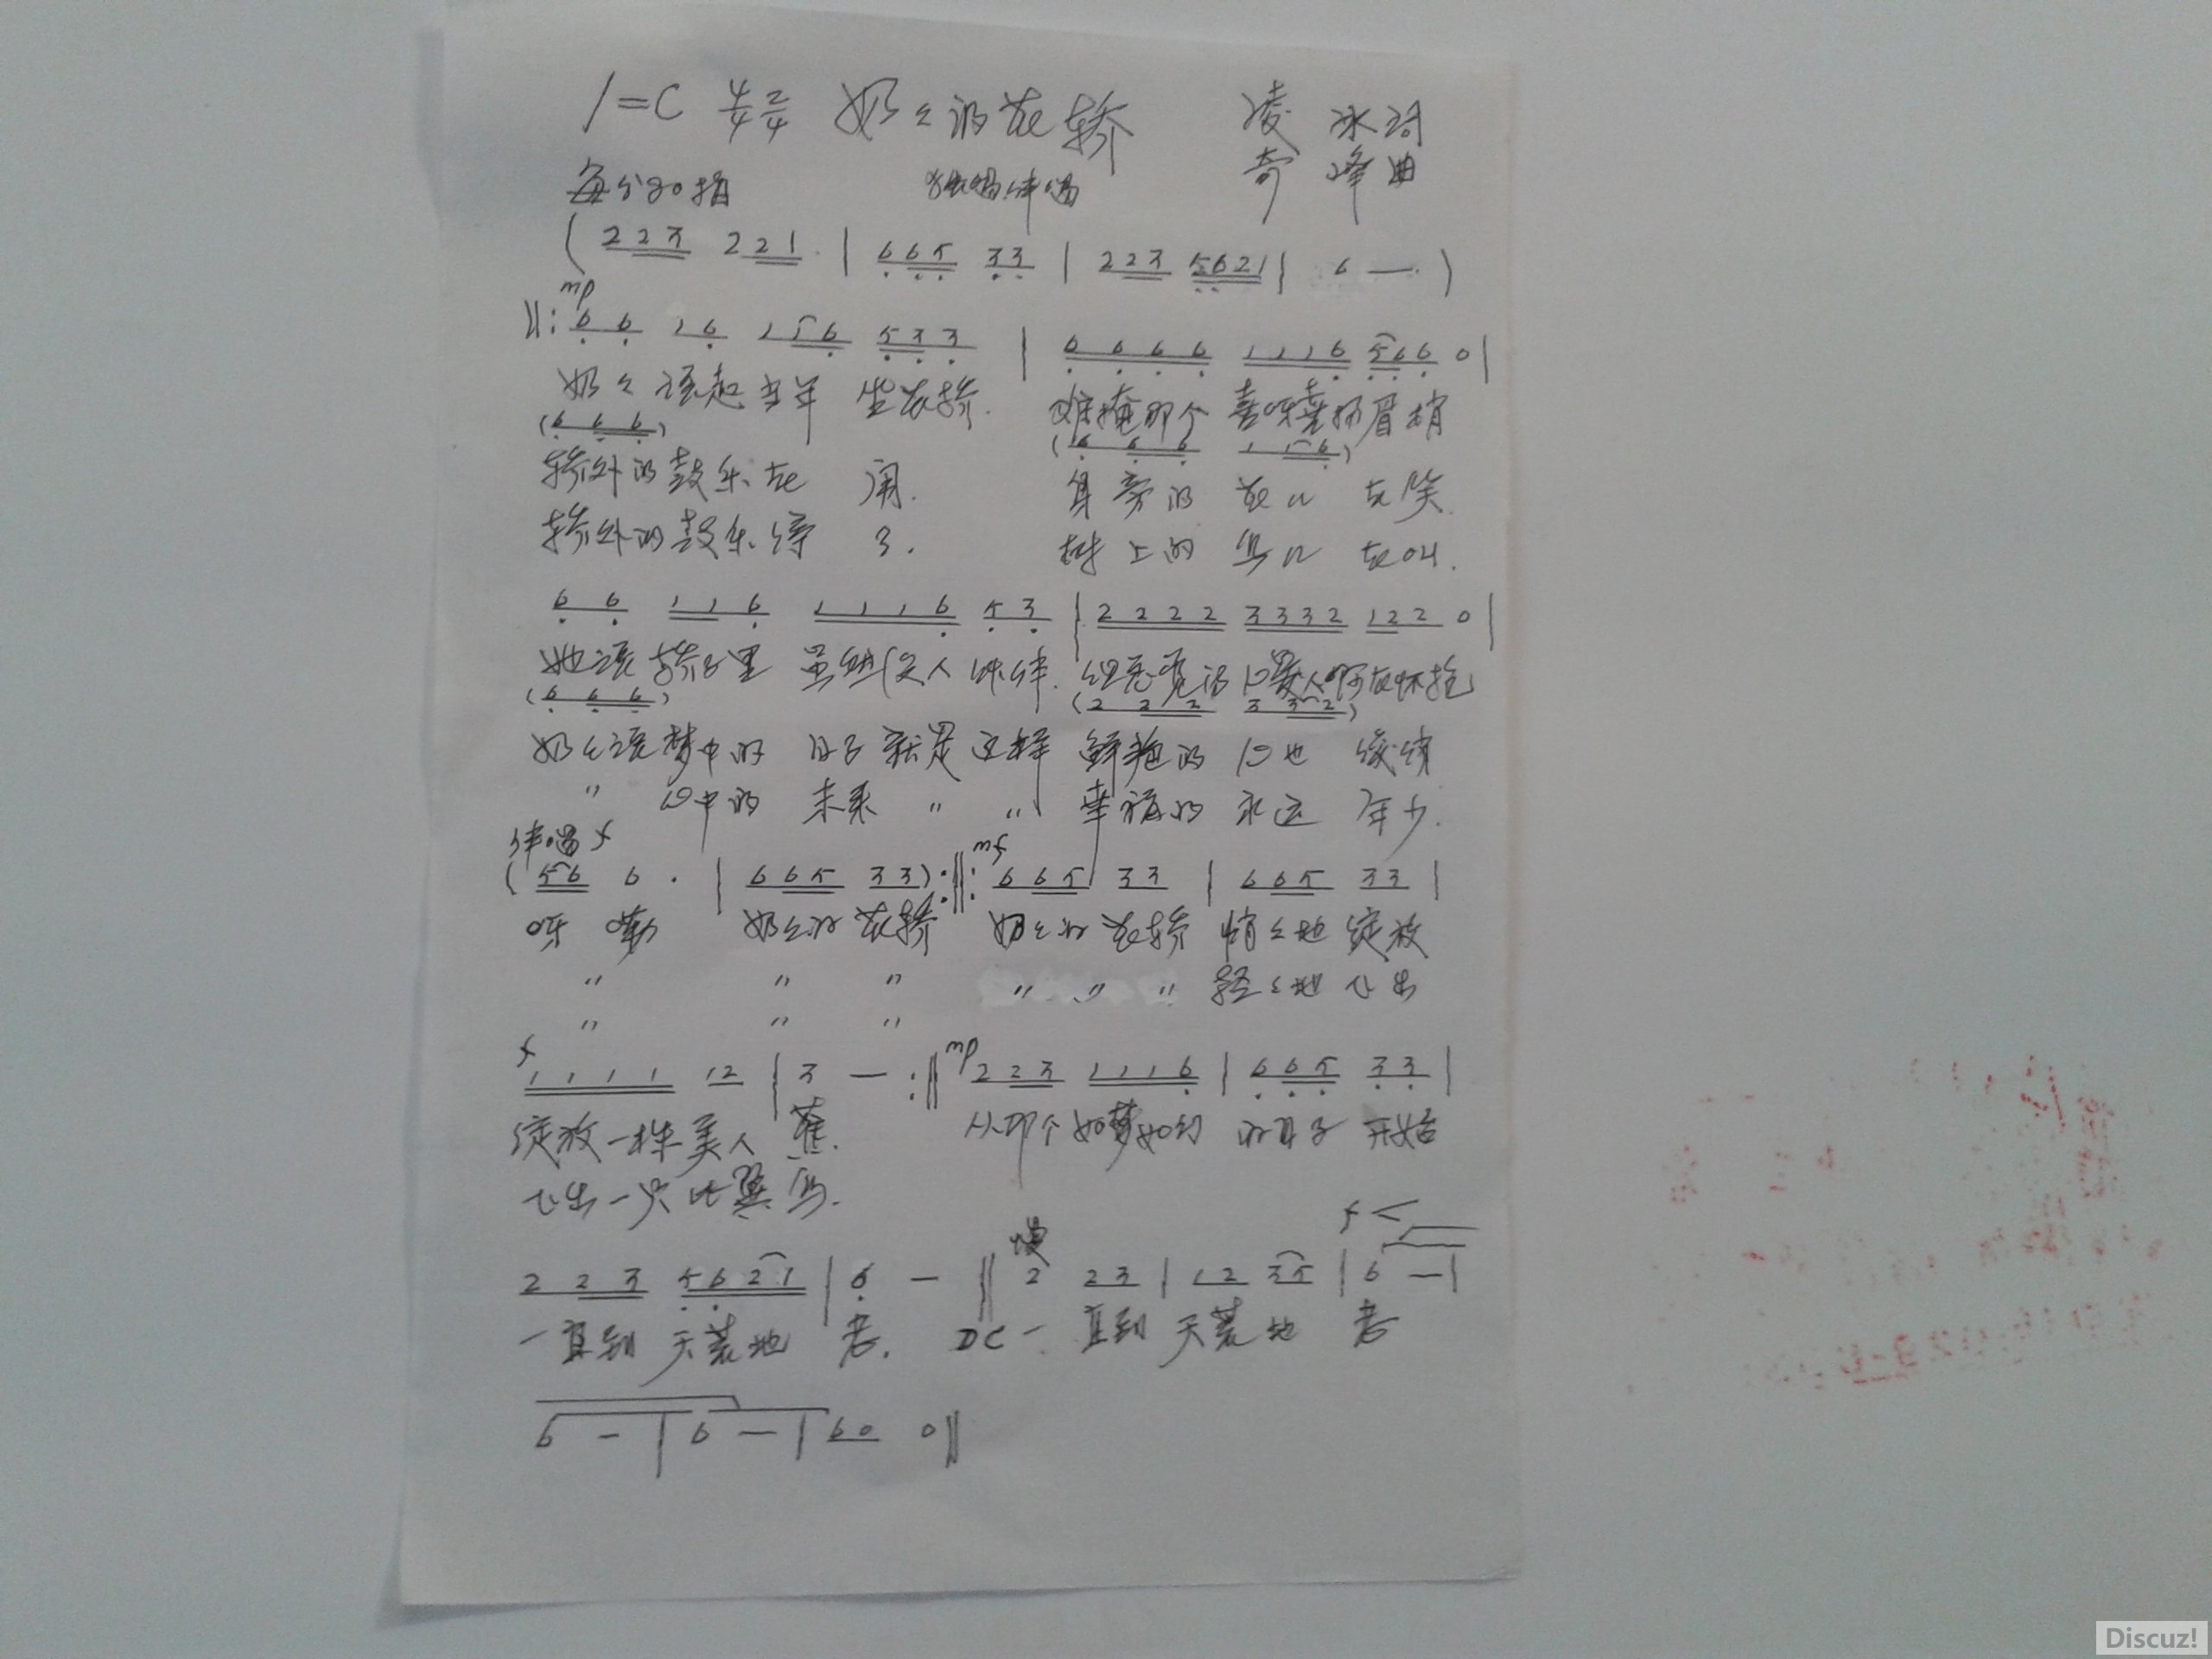 1=C 4/4 2/4 奶々的花轿 凌冰词
每分80拍 独唱伴唱 奇峰曲
( 2 2 3 2 2 1 . | 6 6 5 3 3 | 2 2 3 5 6 2 1 | 6 — )
mp
‖: 6 6 1 6 1 1 6 5 3 3 | 6 6 6 6 1 1 1 6 5 6 6 0 |
奶々说起当年 坐花轿. 难掩那个 喜呀喜扬眉梢
(6 6 6) (6 6 6 1 1 6)
轿外的鼓乐在 闹. 身旁的 花儿 在笑.
轿外的鼓乐停 了. 树上的 鸟儿 在叫.
6 6 1 1 6 1 1 1 6 5 3 | 2 2 2 2 3 3 3 2 1 2 2 0 |
她说轿子里 虽然没人伴.
(6 6 6) (2 2 2 3 3 2)
奶々说梦中的 日子就是这样 鲜艳的 心也
" 心中的 未来 " " 幸福的 永远 年少.
伴唱 f mf
( 5 6 6 . | 6 6 5 3 3 ) :‖: 6 6 5 3 3 | 6 6 5 3 3 |
呀 嘞 奶々的花轿 奶々的花轿 悄々地 绽放
" " " " " " 轻々地 飞出
" " "
f mp
1 1 1 1 1 2 | 3 — :‖ 2 2 3 1 1 1 6 | 6 6 5 3 3 |
绽放一株美人 蕉. 从那个如梦如幻 的日子 开始
飞出一只比翼 鸟.
慢 f <
2 2 3 5 6 2 1 | 6 — ‖ 2 2 3 | 1 2 3 5 | 6 — |
一直到 天荒地 老. DC 一 直到 天荒地 老
6 — | 6 — | 6 0 0 ‖
Discuz!